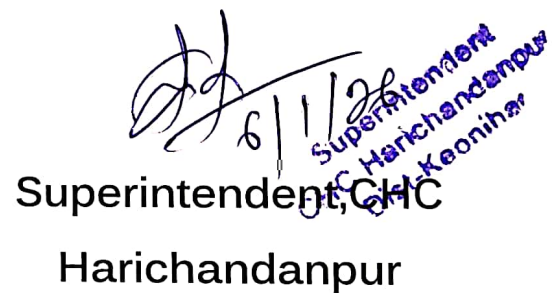 6/1/26
Superintendent
CHC Harichandanpur
Dist-Keonjhar
Superintendent,CHC
Harichandanpur